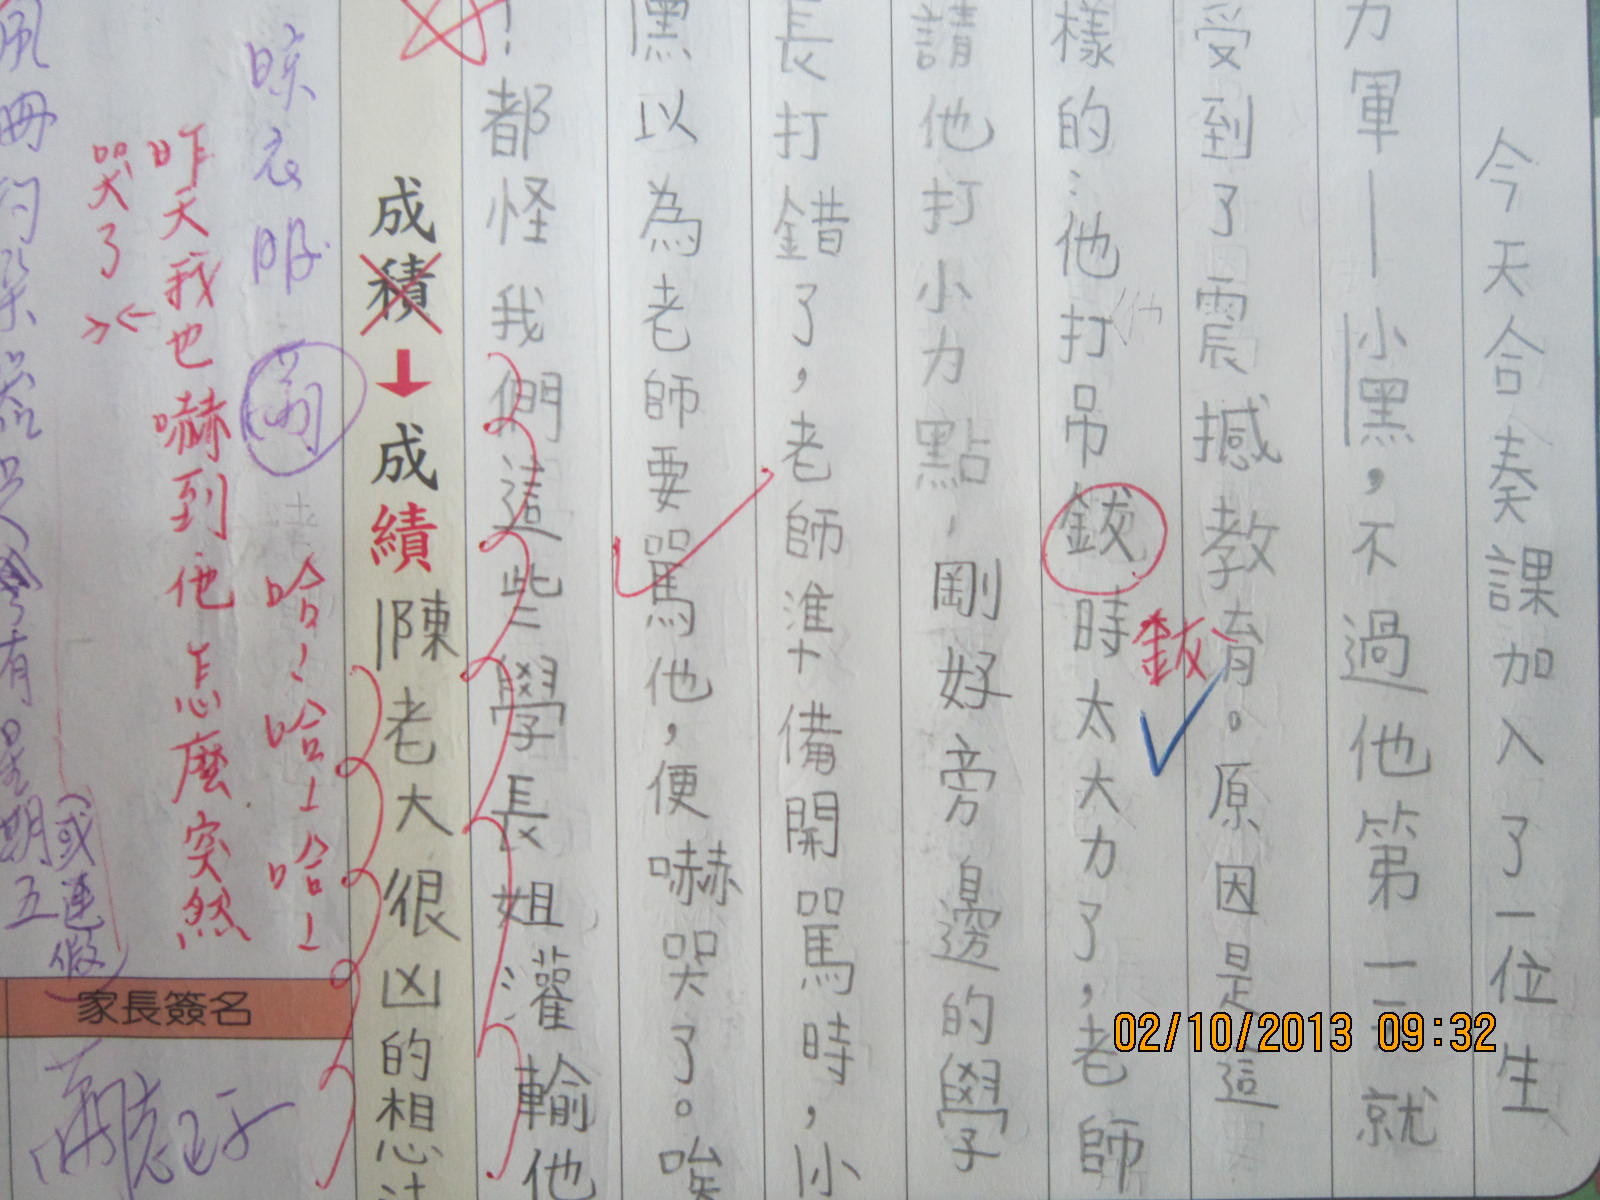 今天合奏課加入了一位生
力軍—小黑，不過他第一天就
受到了震撼教育。原因是這
樣的：他打吊鈸時太大力了，老師
鈸
請他打小力點，剛好旁邊的學
長打錯了，老師準備開罵時，小
黑以為老師要罵他，便嚇哭了。唉
！都怪我們這些學長姐灌輸他
陳老大很凶的想法
成積
成績
哈！哈！哈！
昨天我也嚇到他怎麼突然
哭了
晾衣服
有星期五
(或連假)
家長簽名
02/10/2013 09:32